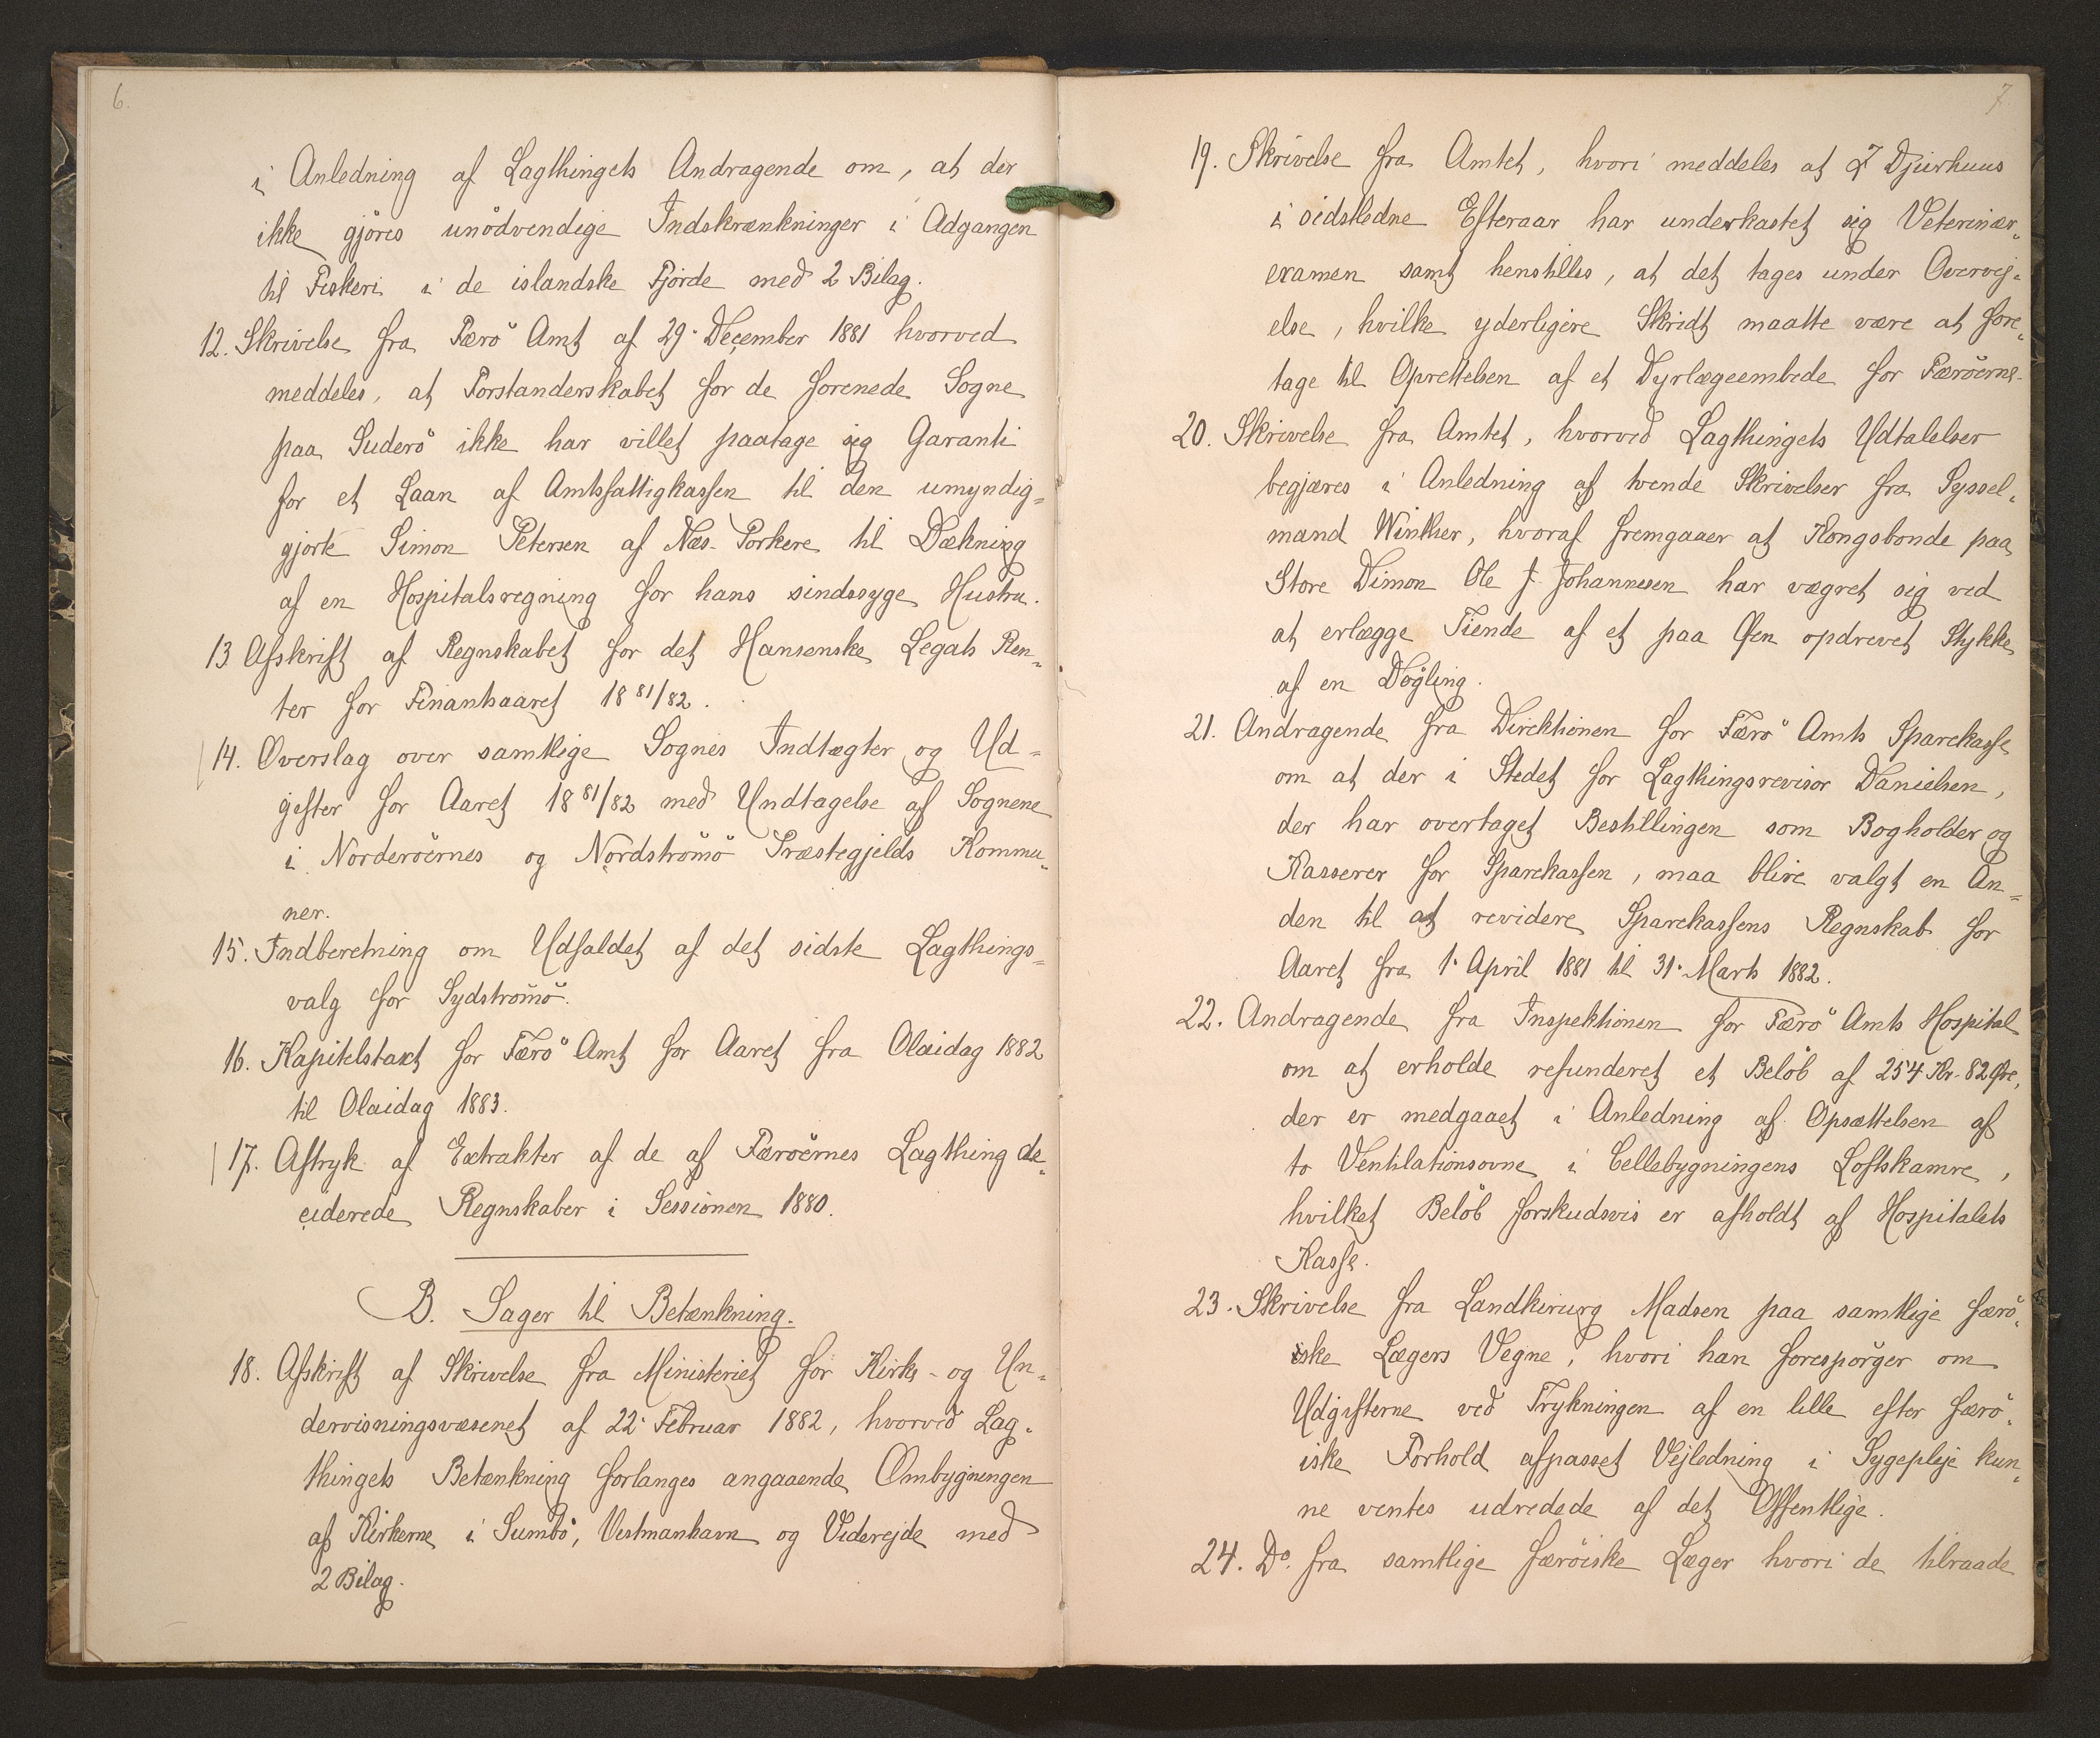 6.
i Anledning af Lagthingets Andragende om, at der
ikke gjöres unödvendige Indskrænkninger i Adgangen
til Fiskeri i de islandske Fjorde med 2 Bilag.
12. Skrivelse fra Færö Amt af 29. December 1881 hvorved
meddeles, at Forstanderskabet for de forenede Sogne
paa Suderö ikke har villet paatage sig Garanti
for et Laan af Amtsfattigkassen til den umyndig-
gjorte Simon Petersen af Næs-Porkere til Dækning
af en Hospitalsregning for hans sindssyge Hustru.
13 Afskrift af Regnskabet for det Hansenske Legats Ren-
ter for Finantsaaret 18 81/82.
14. Overslag over samtlige Sognes Indtægter og Ud-
gifter for Aaret 18 81/82 med Undtagelse af Sognene
i Norderöernes og Nordströmö Præstegjelds Kommu-
ner.
15. Indberetning om Udfaldet af det sidste Lagthings-
valg for Sydströmö.
16. Kapitelstaxt for Færö Amt for Aaret fra Olaidag 1882
til Olaidag 1883.
17. Aftryk af Extrakter af de af Færöernes Lagthing de-
ciderede Regnskaber i Sessionen 1880.
B. Sager til Betænkning.
18. Afskrift af Skrivelse fra Ministeriet for Kirke- og Un-
dervisningsvæsenet af 22. Februar 1882, hvorved Lag-
thingets Betænkning forlanges angaaende Ombygningen
af Kirkerne i Sumbö, Vestmanhavn og Viderejde med
2 Bilag.
7
19. Skrivelse fra Amtet, hvori meddeles at J Djurhuus
i sidstledne Efteraar har underkastet sig Veterinær-
examen samt henstilles, at det tages under Overvej-
else, hvilke yderligere Skridt maatte være at fore-
tage til Oprettelsen af et Dyrlægeembede for Færöerne.
20. Skrivelse fra Amtet, hvorved Lagthingets Udtalelser
begjæres i Anledning af tvende Skrivelser fra Syssel-
mand Winther, hvoraf fremgaaer at Kongsbonde paa
Store Dimon Ole J. Johannesen har vægret sig ved
at erlægge Tiende af et paa Øen opdrevet Stykke
af en Dögling.
21. Andragende fra Direktionen for Færö Amts Sparekasse
om at der i Stedet for Lagthingsrevisor Danielsen,
der har overtaget Bestillingen som Bogholder og
Kasserer for Sparekassen, maa blive valgt en An-
den til at revidere Sparekassens Regnskab for
Aaret fra 1. April 1881 til 31. Marts 1882.
22. Andragende fra Inspektionen for Færö Amts Hospital
om at erholde refunderet et Belöb af 254 Kr. 82 Øre,
der er medgaaet i Anledning af Opsættelsen af
to Ventilationsovne i Cellebygningens Loftskamre,
hvilket Belöb forskudsvis er afholdt af Hospitalets
Kasse.
23. Skrivelse fra Landkirurg Madsen paa samtlige færö-
iske Lægers Vegne, hvori han forespörger om
Udgifterne ved Trykningen af en lille efter færö-
iske Forhold afpasset Vejledning i Sygepleje kun-
ne ventes udredede af det Offentlige.
24. Do. fra samtlige færöiske Læger hvori de tilraade